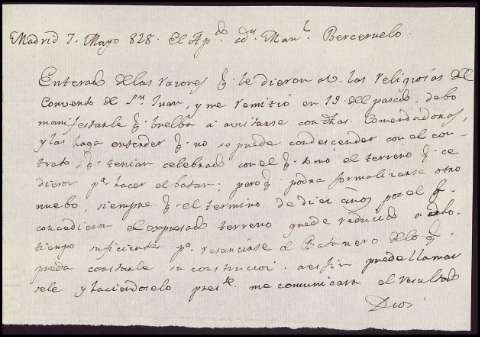 Madrid 7. Mayo 828. El Ap.do D.n Man.l Berceruelo.
Enterado de las razones q.e le dieron a V. las religiosas del
Convento de S.n Juan, y me remitió en 19 del pasado, debo
manifestarle q.e buelba a avistarse con dhas Comendadoras,
y las haga entender q.e no se puede condescender con el con
trato q.e tenian celebrado con el q.e tomo el terreno q.e ce
dieron p.a hacer el batan; pero q.e podra formalizarse otro
nuebo, siempre q.e el termino de diez años por el q.e
concedieron el expresado terreno quede reducido a ocho
tiempo suficiente p.a resarcirse el Batanero de lo q.e
pueda costarle su construccion. a este fin puede llamar
sele y haciendoselo pres.te me comunicara el resultado
Dios